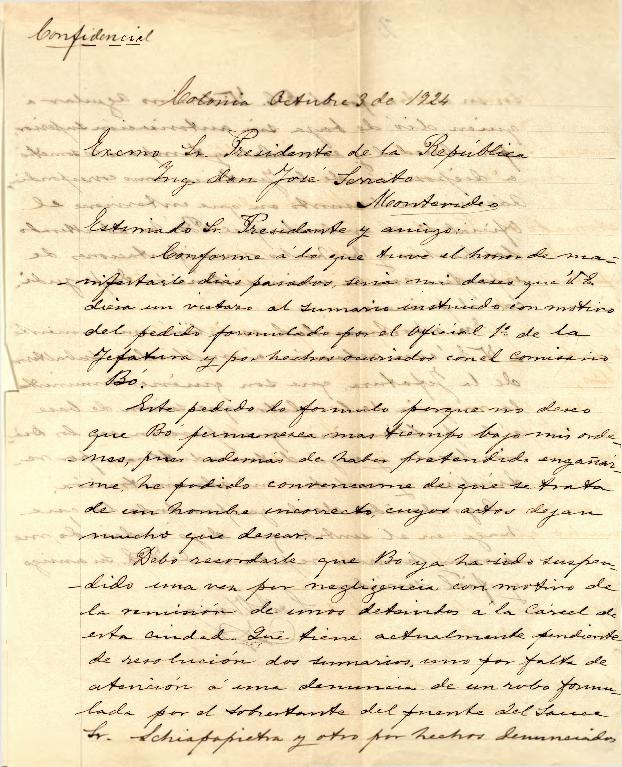 Confidencial
Colonia Octubre 3 de 1924
Excmo Sr. Presidente de la República
Ing. don José Serrato
Montevideo
Estimado Sr. Presidente y amigo:
Conforme á lo que tuve el honor de ma-
-nifestarle dias pasados, seria mi deseo que V. E.
diera un vistazo al sumario instruido con motivo
del pedido formulado por el Oficial 1º de la
Jefatura y por hechos ocurridos con el Comisario
Bó.
Este pedido lo formulo porque no deseo
que Bó permanesca mas tiempo bajo mis orde-
-nes, pues además de haber pretendido engañar-
-me, he podido convencerme de que se trata
de un hombre incorrecto, cuyos actos dejan
mucho que desear.-
Debo recordarle que Bó ya ha sido suspen-
-dido una vez por negligencia con motivo de
la remisión de unos detenidos a la Cárcel de
esta ciudad. Que tiene actualmente pendiente
de resolución dos sumarios, uno por falta de
atención á una denuncia de un robo formu-
lada por el sobrestante del puente del Sauce
Sr. Schiapapietra y otro por hechos denunciados